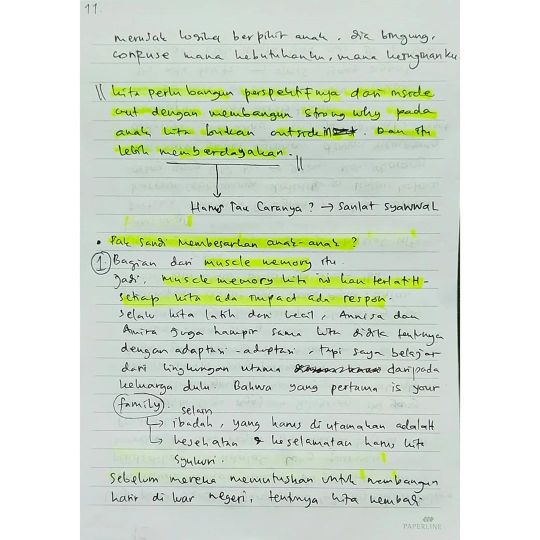 11.
merusak logika berpikir anak, dia bingung,
confuse mana kebutuhanku, mana keinginanku
|| kita perlu bangun perspektifnya dari inside
out dengan membangun strong why pada
anak kita bukan outside in. Dan itu
lebih memberdayakan. ||
Harus Tau Caranya? → Sanlat Syawwal
• Pak Sandi membesarkan anak-anak?
1. Bagian dari muscle memory itu.
Jadi, muscle memory kita ini kan terlatih
setiap kita ada impact ada respon.
Selalu kita latih dari kecil, Annisa dan
Amira juga hampir sama kita didik tentunya
dengan adaptasi-adaptasi, tapi saya belajar
dari lingkungan utama daripada
keluarga dulu. Bahwa yang pertama is your
family.
selain
↳ ibadah, yang harus diutamakan adalah
↳ kesehatan & keselamatan harus kita
syukuri.
Sebelum mereka memutuskan untuk membangun
karir di luar negeri, tentunya kita kembali
PAPERLINE